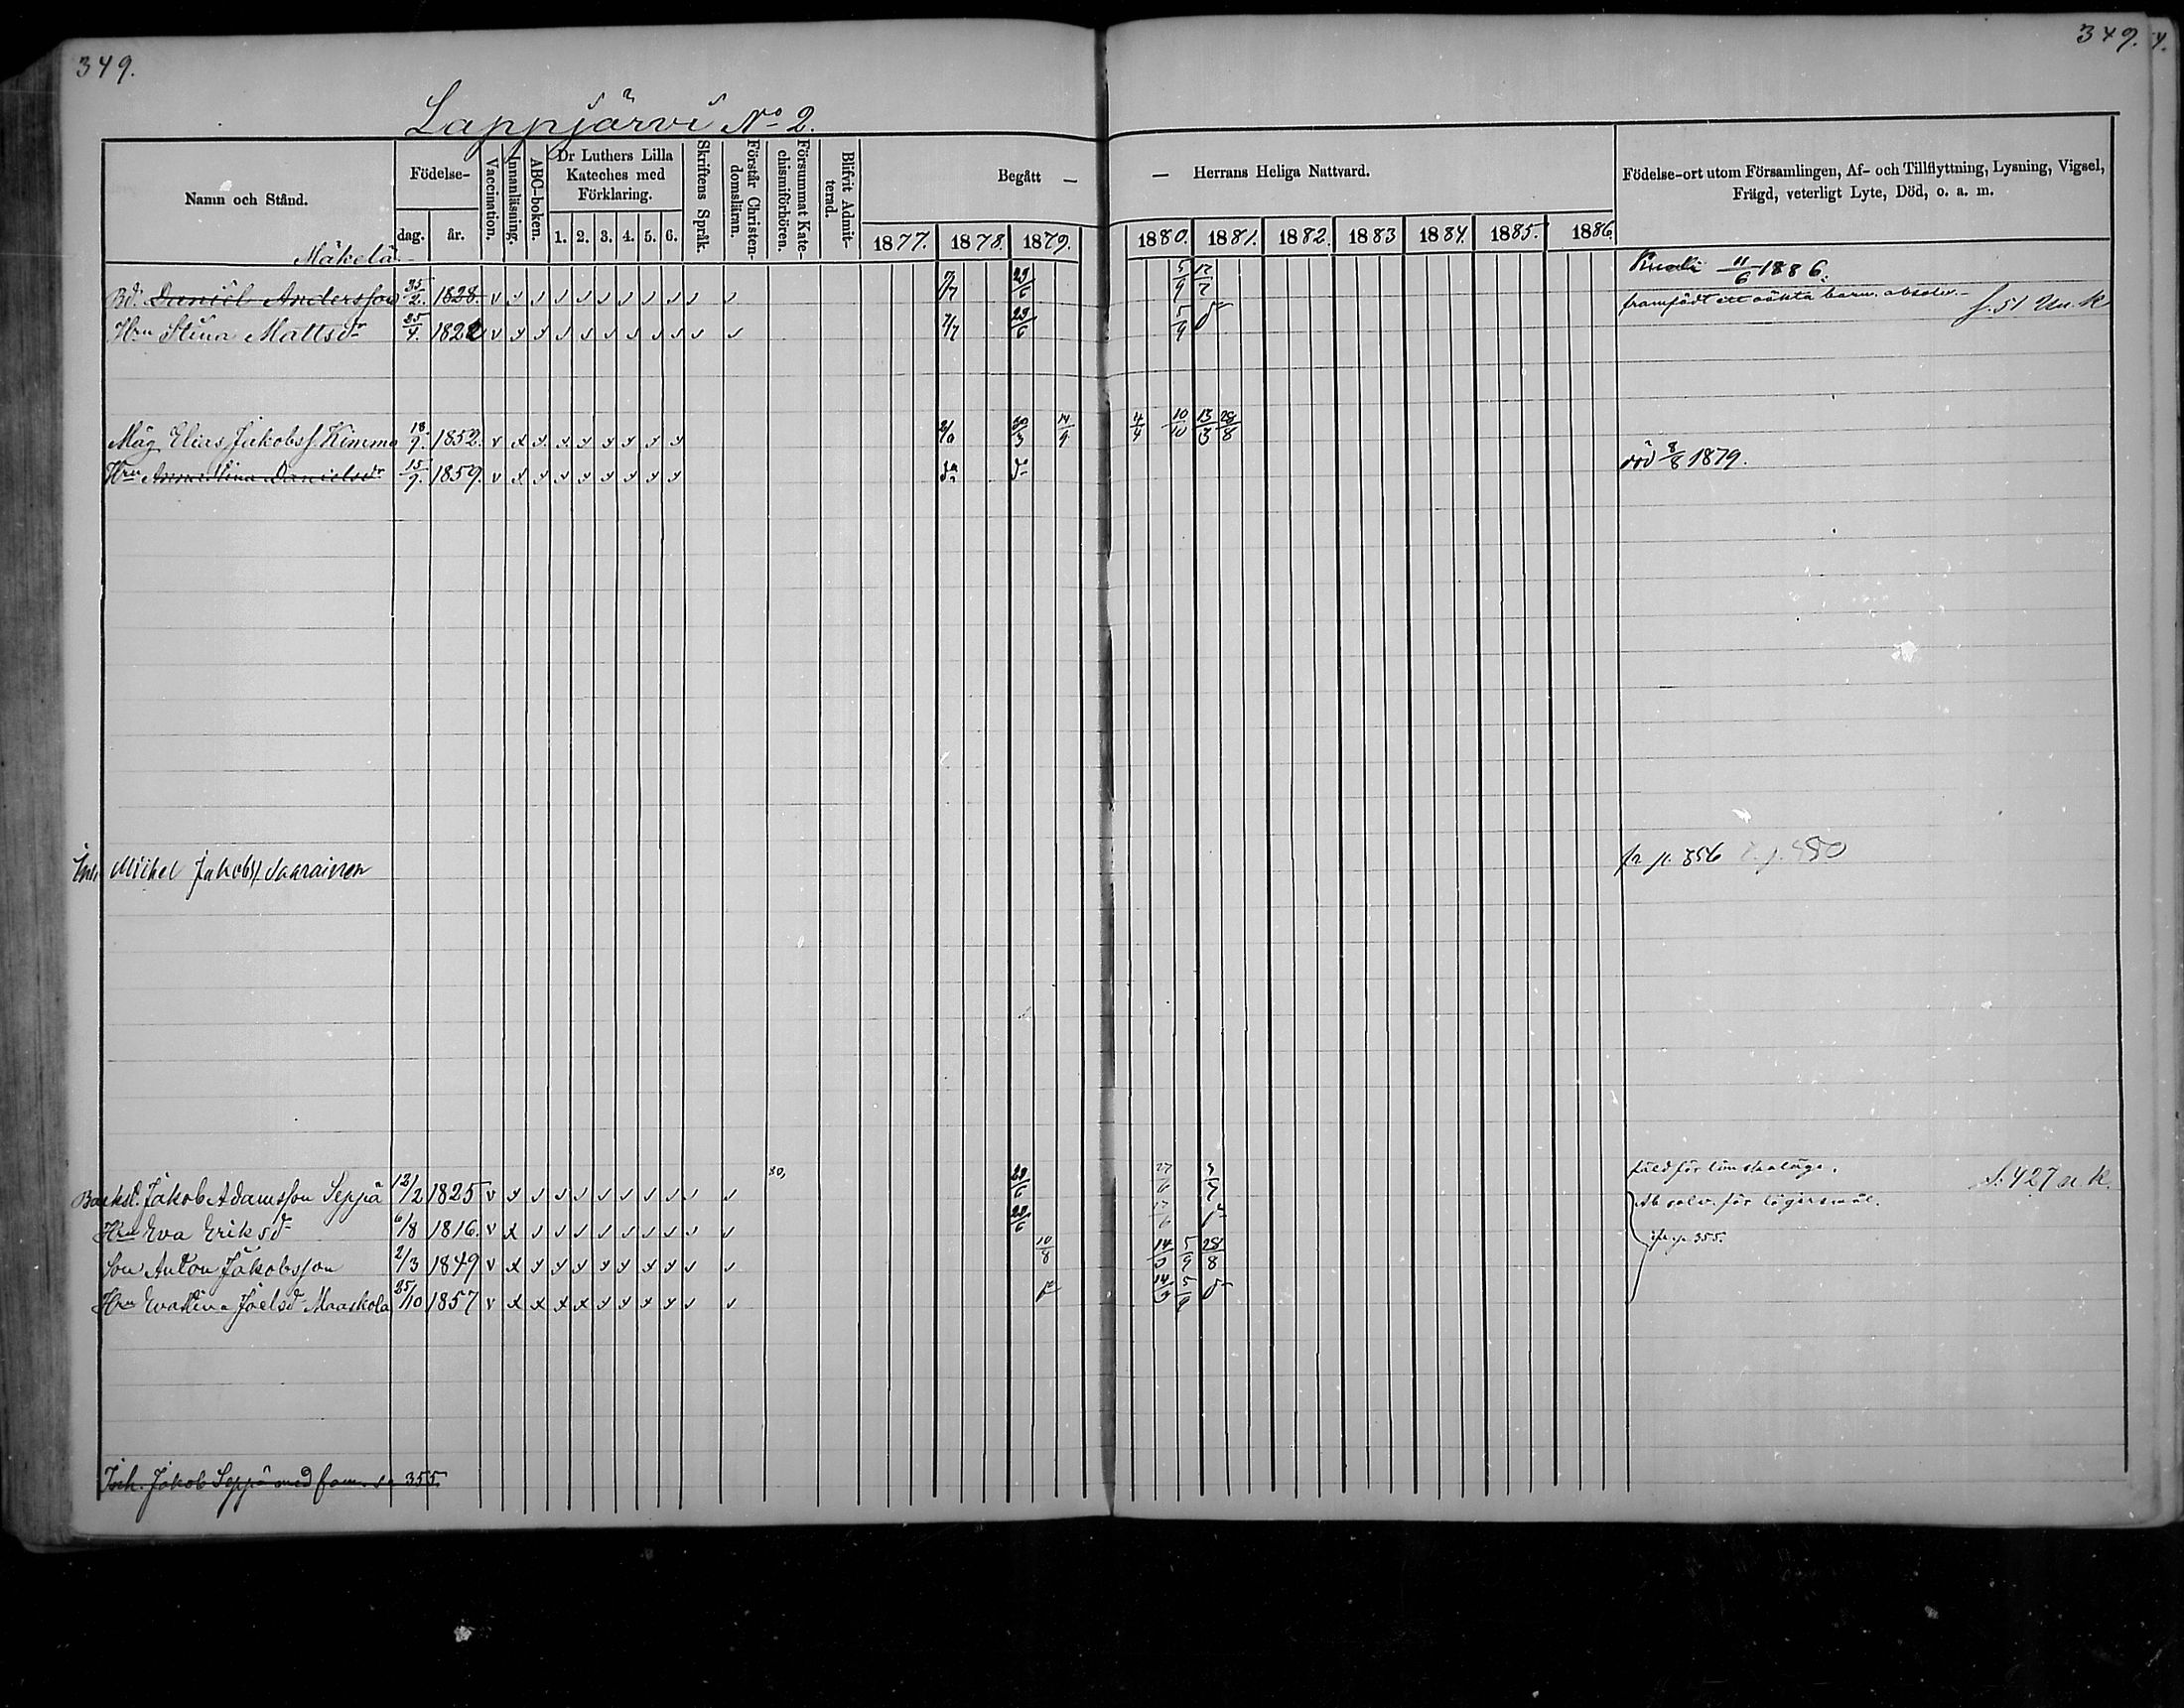 349.
349.
Lappjärvi No 2.
Namn och Stånd.
Födelse-
dag.
år.
Vaccination.
Innanläsning.
ABC-boken.
Dr Luthers Lilla
Kateches med
Förklaring.
1. 2. 3. 4. 5. 6.
Skriftens Språk.
Förstår Christen-
domsläran.
Försummat Kate-
chismiförhören.
Blifvit Admit-
terad.
Begått —
— Herrans Heliga Nattvard.
1877. 1878. 1879.
1880. 1881. 1882. 1883 1884. 1885. 1886.
Födelse-ort utom Församlingen, Af- och Tillflyttning, Lysning, Vigsel,
Frägd, veterligt Lyte, Död, o. a. m.
Mäkelä
Kuoli 11/6 1886.
Bd. Daniel Andersson 25/2. 1828 7/7 29/6 5/9
framfödt ett oäkta barn. absolv.
Hru Stina Mattsdr 25/4. 1822 7/7 29/6 5/9
f. 51 Un. K
Måg Elias Jakobss. Kimmo 18/9. 1852. 30/3 14/9 4/4 10/10 13/3 28/8
Hru Anna Stina Danielsdr 15/7. 1859.
död 8/8 1879.
Inh Michel Jakobss Saarainen
fr p. 356
Backst. Jakob Adamsson Seppä 12/2 1825 80, 29/6
S. 427 u. k.
Absolv. för lägersmål.
Hru Eva Eriksdr 6/8 1816. 29/6
355.
Son Anton Jakobsson 2/3 1849 10/8 14/3 5/9 28/8
Hru Eva Stina Joelsdr Maaskola 25/10 1857 14/3 5/9
Inh. Jakob Seppä med fam. se 355.